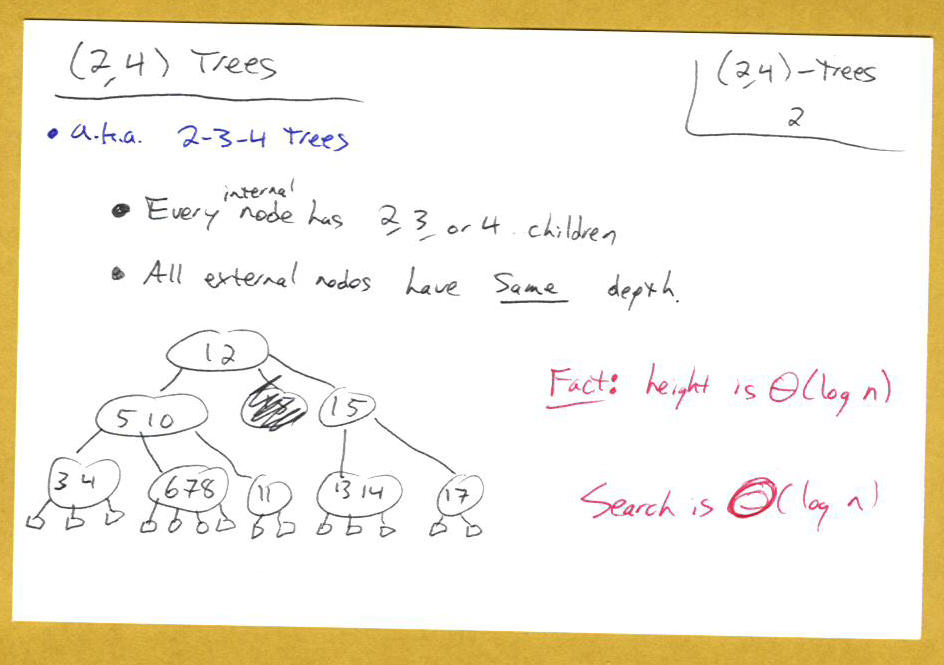 (2,4) Trees
(2,4)-Trees
2
• a.k.a. 2-3-4 Trees
• Every internal node has 2, 3, or 4 children
• All external nodes have Same depth.
12
5 10
15
3 4
6 7 8
11
13 14
17
Fact: height is Θ(log n)
Search is Θ(log n)